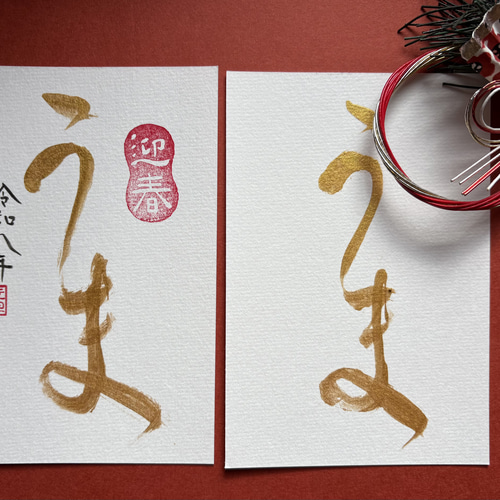 うま
迎春
令和八年
うま